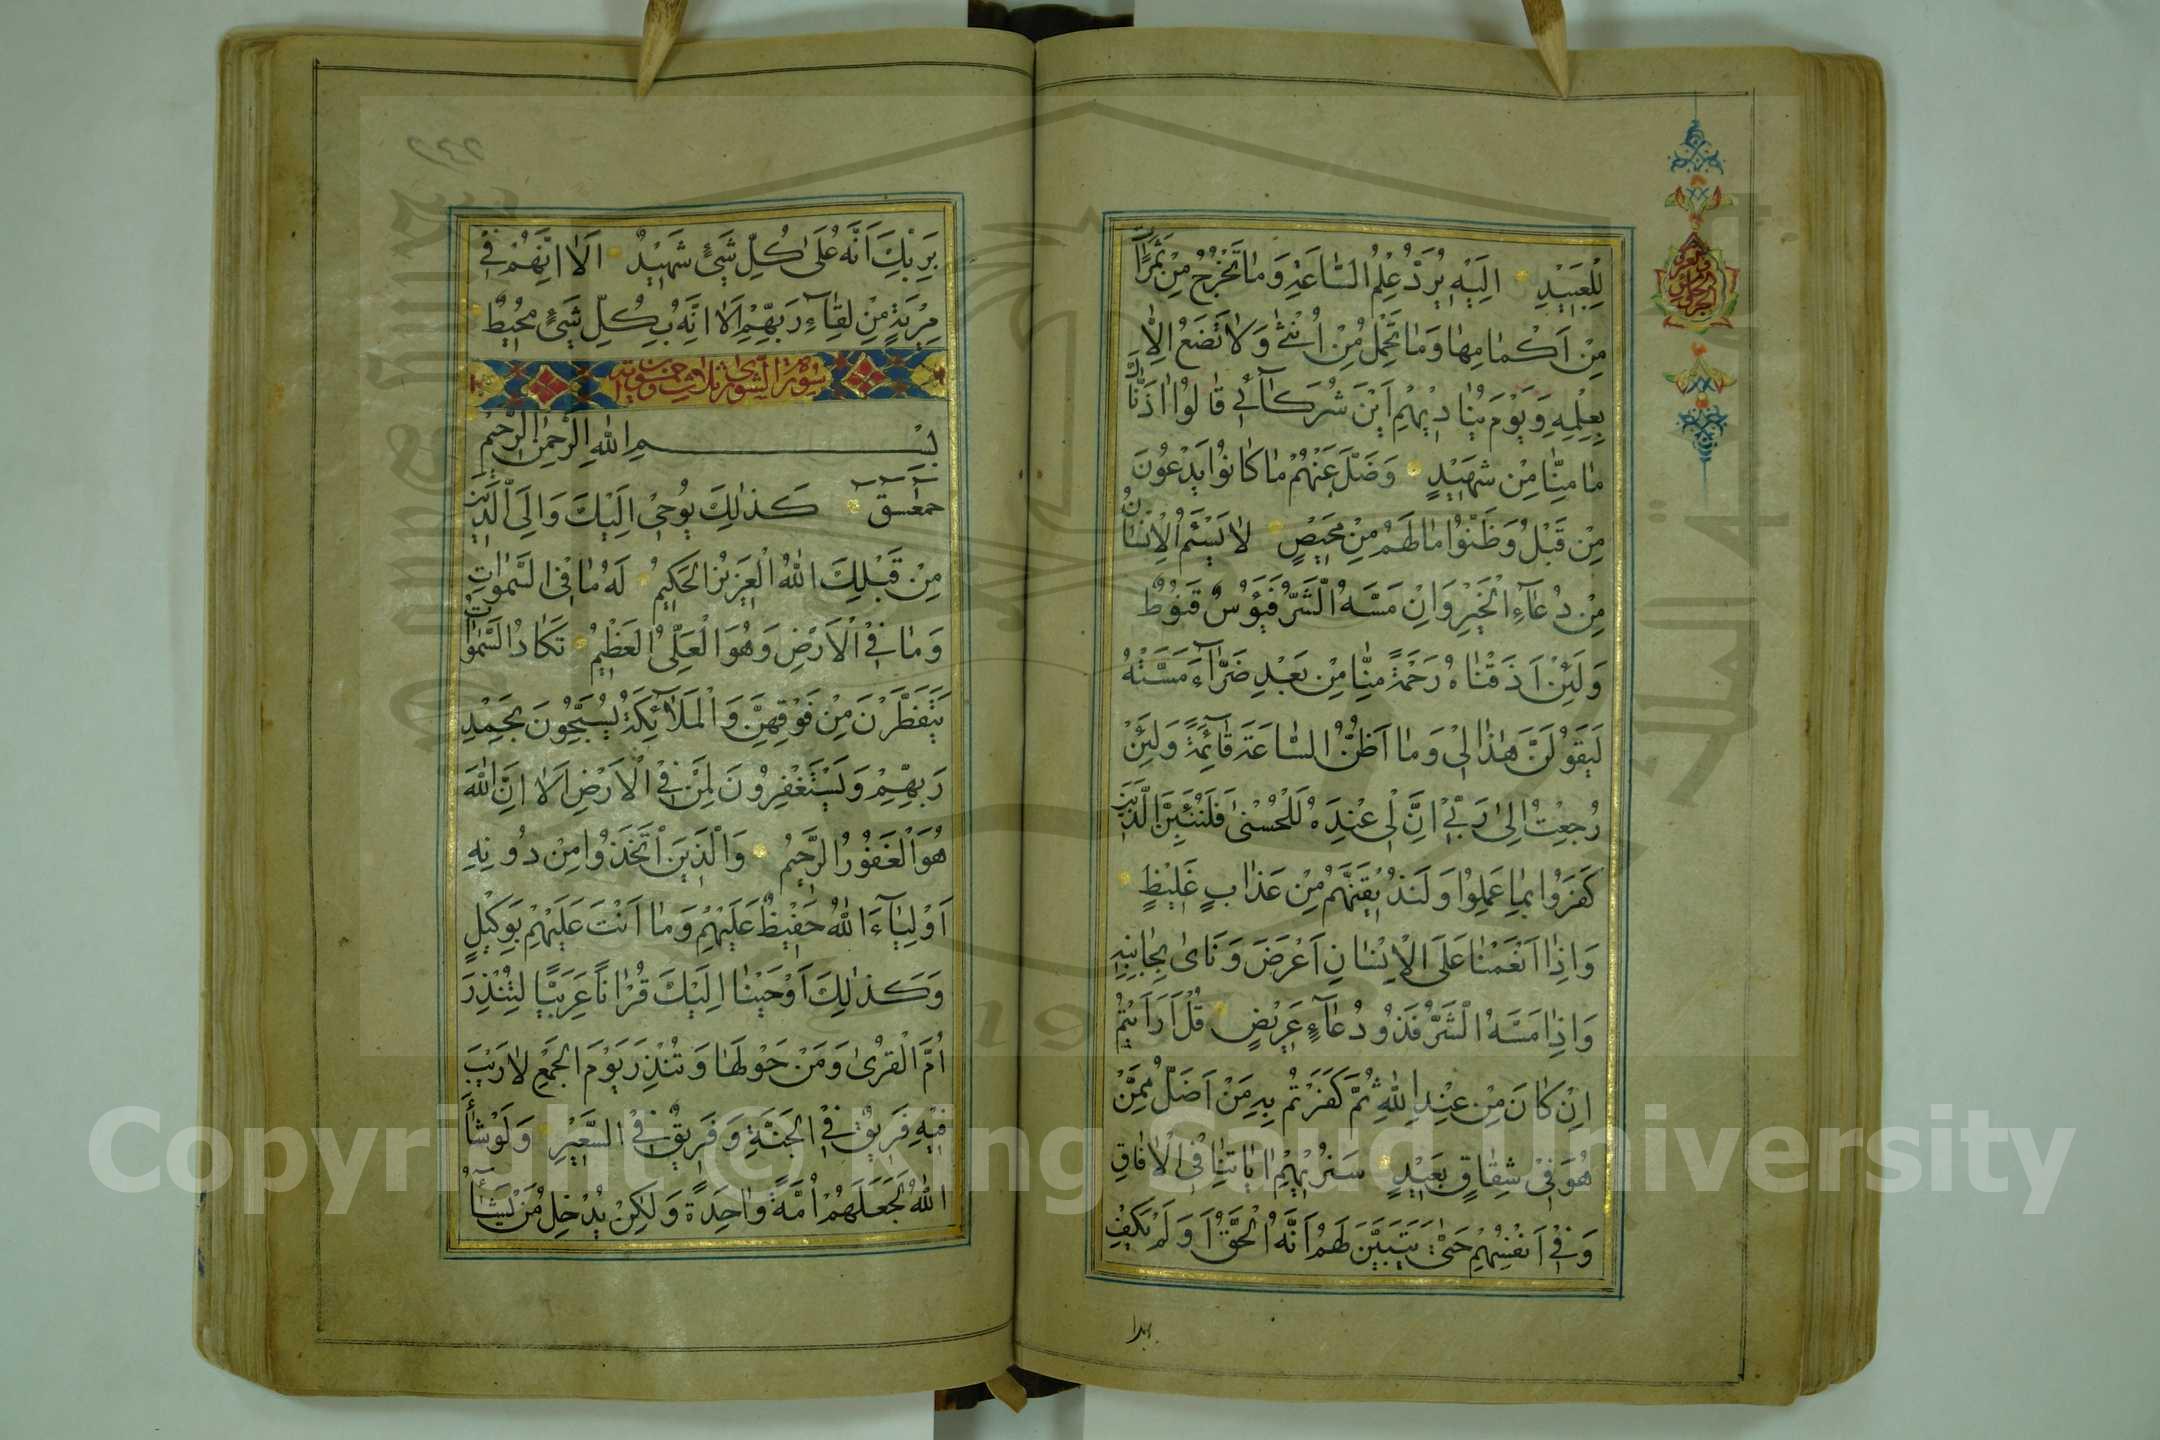 لِلْعَبِيدِ اِلَيْهِ يُرَدُّ عِلْمُ السَّاعَةِ وَمَا تَخْرُجُ مِنْ ثَمَرَاتٍ
مِنْ اَكْمَامِهَا وَمَا تَحْمِلُ مِنْ اُنْثٰى وَلَا تَضَعُ اِلَّا
بِعِلْمِهِ وَيَوْمَ يُنَادِيْهِمْ اَيْنَ شُرَكَآئِي قَالُوا اٰذَنَّاكَ
مَا مِنَّا مِنْ شَهِيْدٍ وَضَلَّ عَنْهُمْ مَا كَانُوا يَدْعُونَ
مِنْ قَبْلُ وَظَنُّوا مَا لَهُمْ مِنْ مَحِيْصٍ لَا يَسْئَمُ الْاِنْسَانُ
مِنْ دُعَآءِ الْخَيْرِ وَاِنْ مَسَّهُ الشَّرُّ فَيَؤُسٌ قَنُوطٌ
وَلَئِنْ اَذَقْنَاهُ رَحْمَةً مِنَّا مِنْ بَعْدِ ضَرَّآءَ مَسَّتْهُ
لَيَقُولَنَّ هٰذَا لِيْ وَمَا اَظُنُّ السَّاعَةَ قَآئِمَةً وَلَئِنْ
رُجِعْتُ اِلٰى رَبِّيْ اِنَّ لِيْ عِنْدَهُ لَلْحُسْنٰى فَلَنُنَبِّئَنَّ الَّذِيْنَ
كَفَرُوا بِمَا عَمِلُوا وَلَنُذِيْقَنَّهُمْ مِنْ عَذَابٍ غَلِيْظٍ
وَاِذَا اَنْعَمْنَا عَلَى الْاِنْسَانِ اَعْرَضَ وَنَاٰى بِجَانِبِهِ
وَاِذَا مَسَّهُ الشَّرُّ فَذُو دُعَآءٍ عَرِيْضٍ قُلْ اَرَاَيْتُمْ
اِنْ كَانَ مِنْ عِنْدِ اللّٰهِ ثُمَّ كَفَرْتُمْ بِهِ مَنْ اَضَلُّ مِمَّنْ
هُوَ فِيْ شِقَاقٍ بَعِيْدٍ سَنُرِيْهِمْ اٰيَاتِنَا فِي الْاٰفَاقِ
وَفِيْ اَنْفُسِهِمْ حَتّٰى يَتَبَيَّنَ لَهُمْ اَنَّهُ الْحَقُّ اَوَلَمْ يَكْفِ
٢٤٢
بِرَبِّكَ اَنَّهُ عَلٰى كُلِّ شَيْءٍ شَهِيْدٌ اَلَا اِنَّهُمْ فِيْ
مِرْيَةٍ مِنْ لِقَآءِ رَبِّهِمْ اَلَا اِنَّهُ بِكُلِّ شَيْءٍ مُحِيْطٌ
سورة الشورى ثلاث وخمسون آية
بِسْمِ اللّٰهِ الرَّحْمٰنِ الرَّحِيْمِ
حمعسق كَذٰلِكَ يُوْحِيْ اِلَيْكَ وَاِلَى الَّذِيْنَ
مِنْ قَبْلِكَ اللّٰهُ الْعَزِيْزُ الْحَكِيْمُ لَهُ مَا فِي السَّمٰوَاتِ
وَمَا فِي الْاَرْضِ وَهُوَ الْعَلِيُّ الْعَظِيْمُ تَكَادُ السَّمٰوَاتُ
يَتَفَطَّرْنَ مِنْ فَوْقِهِنَّ وَالْمَلَآئِكَةُ يُسَبِّحُونَ بِحَمْدِ
رَبِّهِمْ وَيَسْتَغْفِرُونَ لِمَنْ فِي الْاَرْضِ اَلَا اِنَّ اللّٰهَ
هُوَ الْغَفُورُ الرَّحِيْمُ وَالَّذِيْنَ اتَّخَذُوا مِنْ دُونِهِ
اَوْلِيَآءَ اللّٰهُ حَفِيْظٌ عَلَيْهِمْ وَمَا اَنْتَ عَلَيْهِمْ بِوَكِيْلٍ
وَكَذٰلِكَ اَوْحَيْنَا اِلَيْكَ قُرْاٰنًا عَرَبِيًّا لِتُنْذِرَ
اُمَّ الْقُرٰى وَمَنْ حَوْلَهَا وَتُنْذِرَ يَوْمَ الْجَمْعِ لَا رَيْبَ
فِيْهِ فَرِيْقٌ فِي الْجَنَّةِ وَفَرِيْقٌ فِي السَّعِيْرِ وَلَوْ شَآءَ
اللّٰهُ لَجَعَلَهُمْ اُمَّةً وَاحِدَةً وَلٰكِنْ يُدْخِلُ مَنْ يَشَآءُ
Copyright © King Saud University